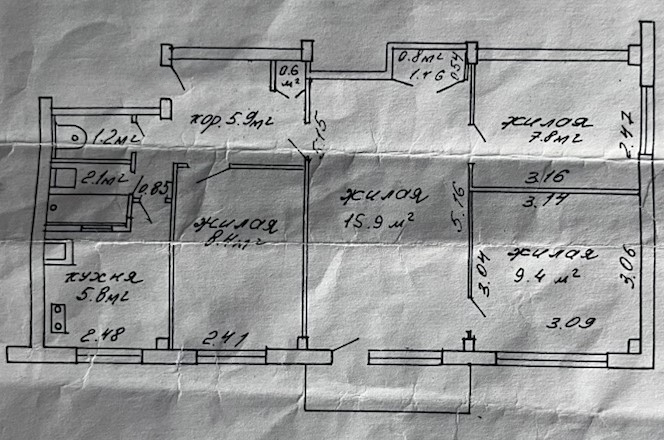 0.8м²
1.46
0.54
0.6
м²
кор. 5.9м²
5.15
жилая
7.8м²
2.47
1.2м²
2.1м²
0.85
3.16
3.14
жилая
8.4м²
жилая
15.9 м²
5.16
3.04
жилая
9.4 м²
3.06
кухня
5.8м²
2.48
2.41
3.09